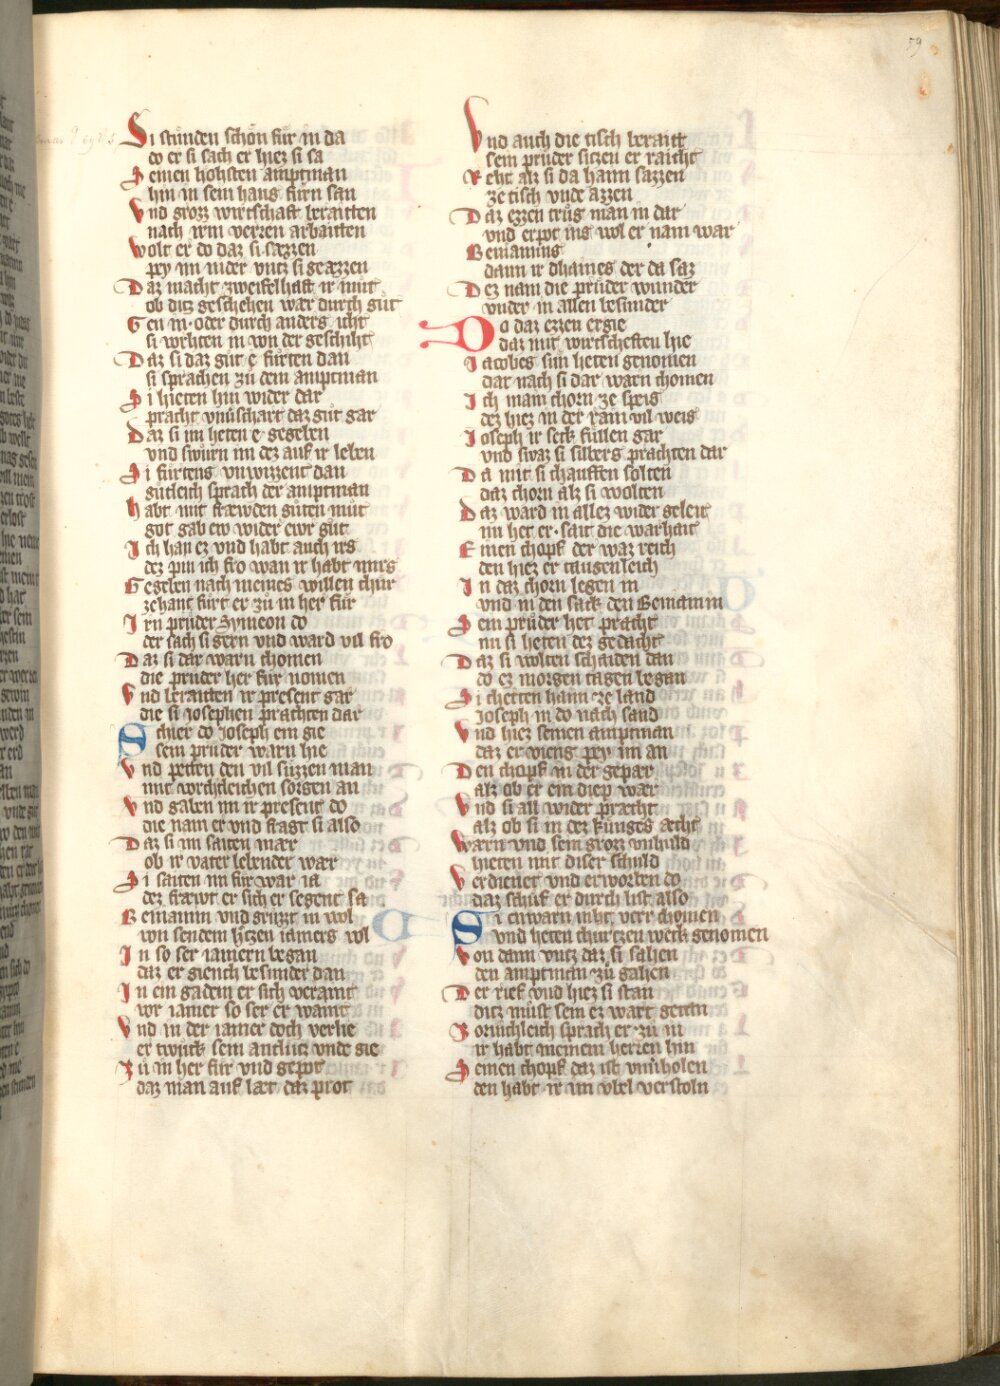 59
Si stůnden schon fůr in da
do er si sach er hiez si sa
Seinen hohsten amptman
hin in sein haus fůrn san
Vnd grozz wirtschaft beraitten
nach irm verren arbaitten
Wolt er do daz si sazzen
pey im nider vntz si geazzen
Daz macht zweifelhaft ir můt
ob ditz geschehen wær durch gůt
Gen in oder durch anders icht
si vorhten in von der geschiht
Daz si daz gůt e fůrten dan
si sprachen zů dem amptman
Si hieten hin wider dar
pracht vnuerschart daz gůt gar
Daz si im heten e gegeben
vnd swůrn im dez auf ir leben
Si fůrtens vnwizzent dan
gůtleich sprach der amptman
Habt mit fræwden gůten můt
got gab ew wider ewr gůt
Ich han ez vnd habt auch irs
dez pin ich fro wan ir habt mirs
Gegeben nach meines willen chůr
zehant fůrt er zů in her fůr
Irn průder Symeon do
der sach si gern vnd ward vil fro
Daz si dar warn chomen
die průder her fůr nomen
Vnd beraitten ir present gar
die si Josephen prachten dar
Schier do Joseph ein gie
sein průder warn hie
Vnd petten den vil sůzzen man
mit vorhtleichen sorgen an
Vnd gaben im ir present do
die nam er vnd fragt si also
Daz si im saiten mær
ob ir vater lebender wær
Si saiten im fůr war ia
dez fræwt er sich er segent sa
Beniamin vnd grůzt in wol
von sendem hertzen iamers vol
In so ser iamern began
daz er giench besunder dan
In ein gadem er sich verspart
vor iamer so ser er waint
Vnd in der iamer doch verlie
er twůch sein antlutz vnde gie
Zů in her fůr vnd gepot
daz man auf læt daz prot
Vnd auch die tisch berait
sein průder sitzen er raicht
Reht als si da haim sazzen
ze tisch vnde azzen
Daz ezzen trůg man in dar
vnd erpot ins wol er nam war
Beniamins
dann ir dhaines der da saz
Dez nam die průder wunder
vnder in allen besunder
Do daz ezzen ergie
daz mit wirtscheften hie
Jacobes sun heten genomen
dar nach si dar warn chomen
Ich main chorn ze speis
dez hiez in der rain vil weis
Joseph ir seck fůllen gar
vnd swaz si silbers prachten dar
Da mit si chauffen solten
daz chorn als si wolten
Daz ward in allez wider geleit
im het er sait die warhait
Einen chopf der waz reich
den hiez er taugenleich
In daz chorn legen in
vnd in den sack den Beniamin
Sein průder het pracht
nu si heten dez gedacht
Daz si wolten schaiden dan
do ez morgen tagen began
Si cherten haim ze land
Joseph in do nach sand
Vnd hiez seinen amptman
daz er vieng pey im an
Den chopf in der gepær
als ob er ein diep wær
Vnd si all wider præcht
als ob si in dez kůniges æcht
Warn vnd sein grozz vnhuld
hieten mit diser schuld
Verdienet vnd erworben do
daz schůf er durch list also
Si enwarn niht verr chomen
vnd heten churtzen weck genomen
Von dann vntz daz si sahen
den amptman zů gahen
Der rief vnd hiez si stan
ditz můst sein ez wart getan
Zornichleich sprach er zů in
ir habt meinem herren hin
Seinen chopf daz ist vnuerholen
den habt ir im vbel verstoln